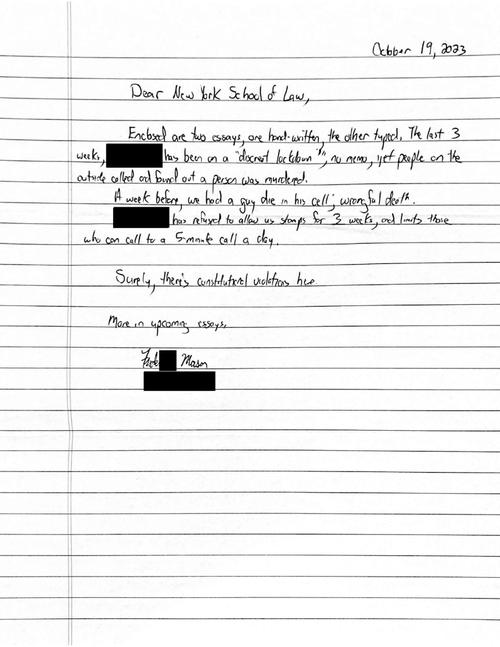 October 19, 2023
Dear New York School of Law,
Enclosed are two essays, one hand-written, the other typed. The last 3
weeks, has been on a "discreet lockdown", no memo, yet people on the
outside called and found out a person was murdered.
A week before, we had a guy die in his cell; wrongful death.
has refused to allow us stamps for 3 weeks, and limits those
who can call to a 5-minute call a day.
Surely, there's constitutional violations here.
More in upcoming essays.
Mason